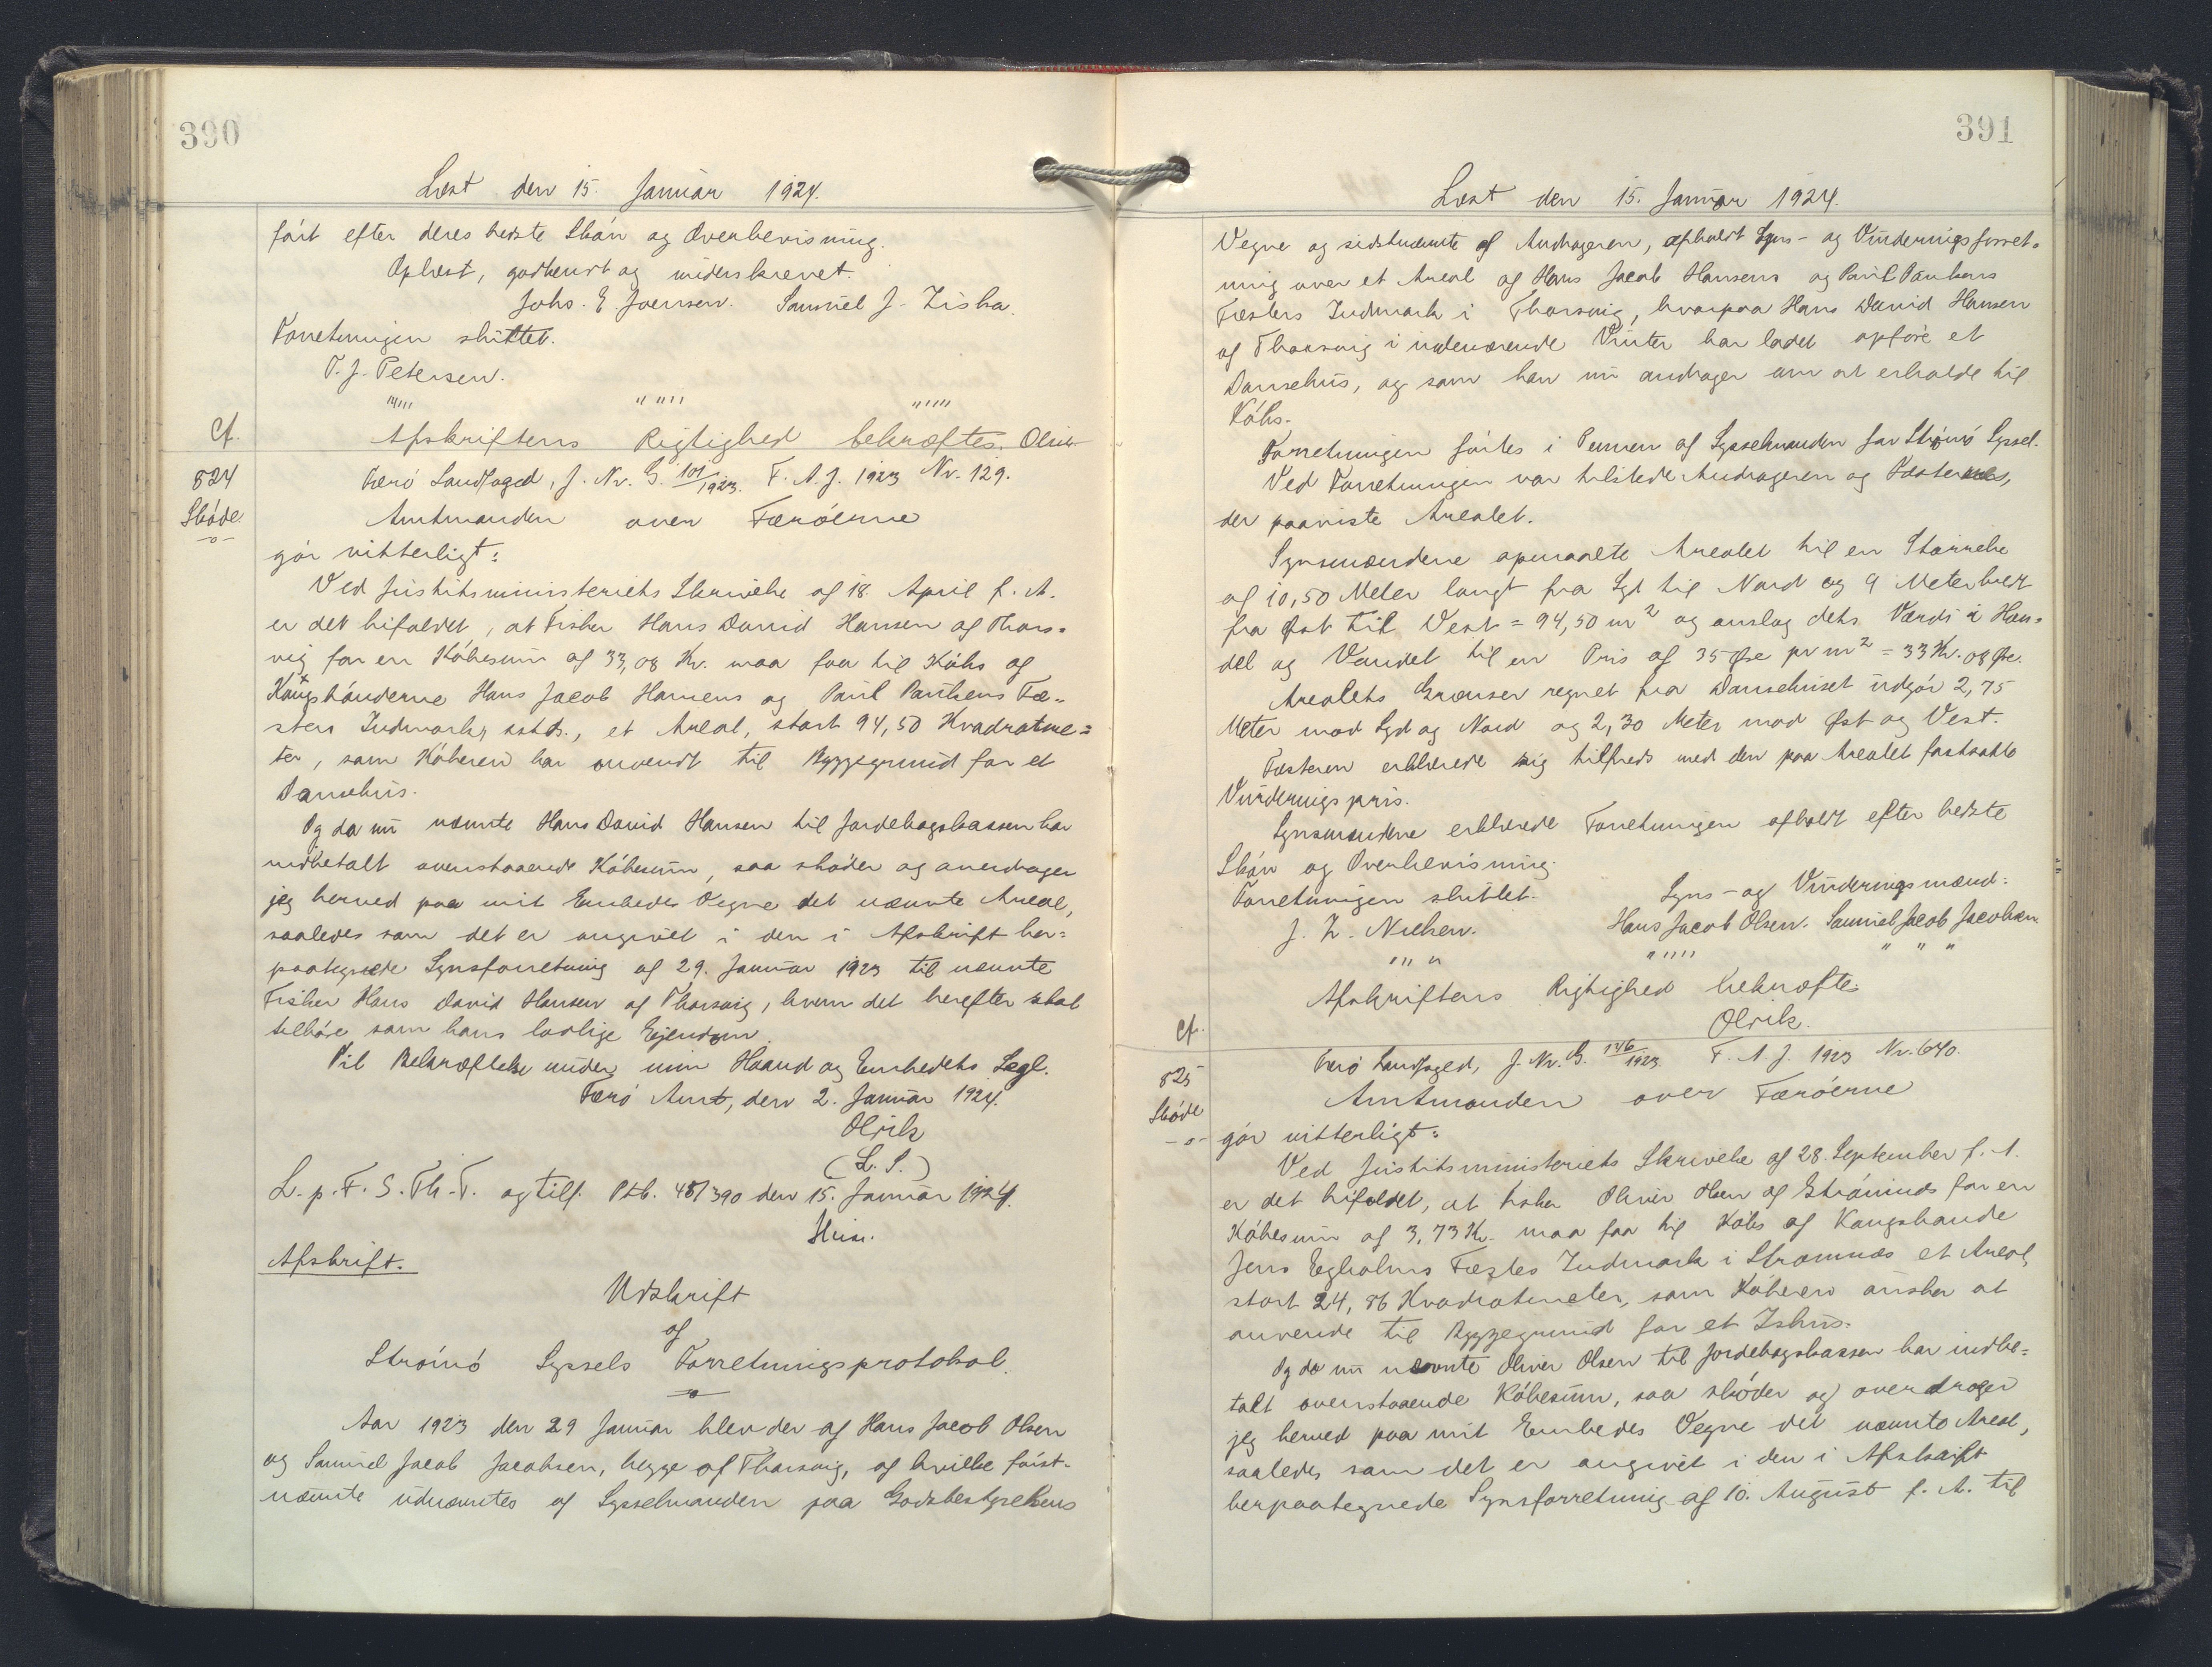 390
Læst den 15. Januar 1924.
ført efter deres bedste Skøn og Overbevisning.
Oplæst, godkendt og underskrevet.
Johs. E Joensen. Samuel J. Ziska.
Forretningen sluttet.
P. J. Petersen.
"""" """" """""
cf. Afskriftens Rigtighed bekræftes. Olrik
824 Færö Landfoged, J. Nr. G. 101/1923. F. A. J. 1923 Nr. 129.
Skóde. Amtmanden over Færóerne
-o-
gór vitterligt:
Ved Justitsministeriets Skrivelse af 18. April f. A.
er det bifaldet, at Fisker Hans David Hansen af Thors=
vig for en Kóbesum af 33,08 Kr. maa faa til Kóbs af
Kongsbónderne Hans Jacob Hansens og Paul Paulsens Fæ=
sters Indmark, sstds., et Areal, stort 94,50 Kvadratme=
ter, som Kóberen har anvendt til Byggegrund for et
Dansehus.
Og da nu nævnte Hans David Hansen til Jordebogskassen har
indbetalt ovenstaaende Kóbesum, saa skóder og overdrager
jeg herved paa mit Embedes Vegne det nævnte Areal,
saaledes som det er angivet i den i Afskrift her=
paategnede Synsforretning af 29. Januar 1923 til nævnte
Fisker Hans David Hansen af Thorsvig, hvem det herefter skal
tilhóre som hans lovlige Ejendom.
Til Bekræftelse under min Haand og Embedets Segl.
Færó Amt, den 2. Januar 1924.
Olrik
(L. S.)
L. p. F. S. Th.-T. og tilf. Ptb. 48/390 den 15. Januar 1924.
Afskrift.
Udskrift
af
Strómó Syssels Forretningsprotokol.
-o-
Aar 1923 den 29 Januar blev der af Hans Jacob Olsen
og Samuel Jacob Jacobsen, begge af Thorsvig, af hvilke fórst-
nævnte udnævntes af Sysselmanden paa Godsbestyrelsens
391
Læst den 15. Januar 1924.
Vegne og sidstnævnte af Andrageren, afholdt Syns- og Vurderingsforret=
ning over et Areal af Hans Jacob Hansens og Paul Paulsens
Fæsters Indmark i Thorsvig, hvorpaa Hans David Hansen
af Thorsvig i indeværende Vinter har ladet opfóre et
Dansehus, og som han nu andrager om at erholde til
Kóbs.
Forretningen fórtes i Pennen af Sysselmanden for Strómó Syssel.
Ved Forretningen var tilstede Andrageren og Fæsterne,
der paaviste Arealet.
Synsmændene opmaalte Arealet til en Størrelse
af 10,50 Meter langt fra Syd til Nord og 9 Meter bredt
fra Øst til Vest = 94,50 m² og anslog dets Værdi i Han=
del og Vandel til en Pris af 35 Øre pr m² = 33 Kr. 08 Øre.
Arealets Grænser regnet fra Dansehuset udgór 2,75
Meter mod Syd og Nord og 2,30 Meter mod Øst og Vest.
Fæsteren erklærede sig tilfreds med den paa Arealet fastsatte
Vurderingspris.
Synsmændene erklærede Forretningen afholdt efter bedste
Skón og Overbevisning.
Forretningen sluttet. Syns- og Vurderingsmænd:
J. H. Nielsen. Hans Jacob Olsen. Samuel Jacob Jacobsen
"""" """"" " " "
Afskriftens Rigtighed bekræftes.
cf. Olrik.
825 Færó Landfoged, J. Nr. G. 146/1923. F. A. J. 1923 Nr. 640.
Skóde Amtmanden over Færóerne
-o- gór vitterligt:
Ved Justitsministeriets Skrivelse af 28. September f. A.
er det bifaldet, at Fisker Oliver Olsen af Strómnæs for en
Kóbesum af 3,73 Kr. maa faa til Kóbs af Kongsbonde
Jens Egholms Fæstes Indmark i Stromnæs et Areal,
stort 24,86 Kvadratmeter, som Kóberen ónsker at
anvende til Byggegrund for et Ishus.
Og da nu nævnte Oliver Olsen til Jordebogskassen har indbe=
talt ovenstaaende Kóbesum, saa skóder og overdrager
jeg herved paa mit Embedes Vegne det nævnte Areal,
saaledes som det er angivet i den i Afskrift
herpaategnede Synsforretning af 10. August f. A. til